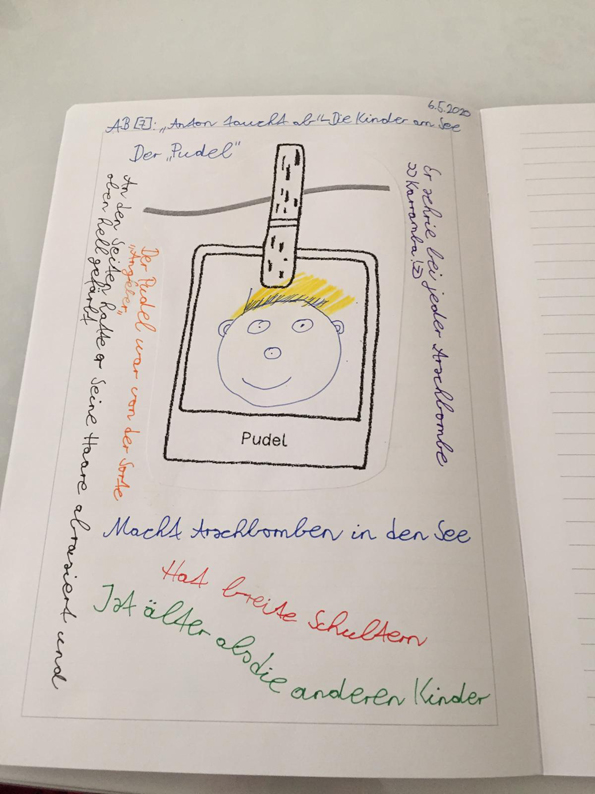 6.5.2020
AB [7]: „Anton taucht ab" – Die Kinder am See
Der „Pudel"
An den Seiten hatte er seine Haare abrasiert und
oben hell gefärbt
Der Pudel war von der Sorte
„Angeber"
Er schrie bei jeder Arschbombe
»Karramba!«
Pudel
Macht Arschbomben in den See
Hat breite Schultern
Ist älter als die anderen Kinder